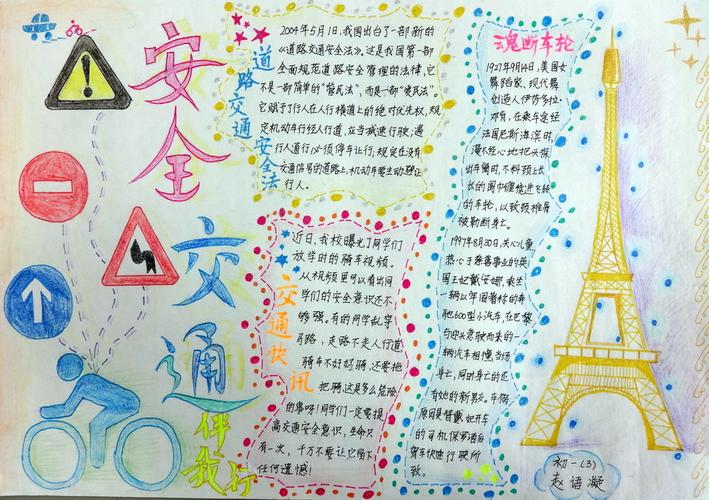 安全交通
伴我行
道路交通安全法
2004年5月1日,我国出台了一部新的
《道路交通安全法》,这是我国第一部
全面规范道路安全管理的法律,它
不是一部简单的“管民法”,而是一部“便民法”。
它赋予了行人在人行横道上的绝对优先权,规
定机动车行经人行道,应当减速行驶;遇
行人通行必须停车让行;规定在没有
交通信号的道路上,机动车要主动避让
行人。
交通快讯
近日,我校曝光了同学们
放学时的骑车视频。
从视频里可以看出同
学们的安全意识还不
够强。有的同学乱穿
马路,走路不走人行道
骑车不好好骑,还要把
把骑,这是多么危险
的事呀!同学们一定要提
高交通安全意识,生命只
有一次,千万不要让它留下
任何遗憾!
魂断车轮
1927年9月14日,美国女
舞蹈家、现代舞
创造人伊莎多拉·
邓肯,在乘车途经
法国尼斯海滨时,
漫不经心地把头探
出车窗时,不料颈上长
长的围巾缠绕进飞转
的车轮,以致颈椎骨
被勒断身亡。
1997年8月30日,关心儿童
热心于慈善事业的英
国王妃戴安娜,乘坐
一辆以牟国着标的奔
驰600型小汽车,在巴黎
与迎面急驶而来的一
辆汽车相撞,当场
身亡,同时身亡的还
有她的新男友。车祸
原因是替戴妃开车
的司机保罗酒后
驾车快速行驶所
致。
初一(3)
赵语凝